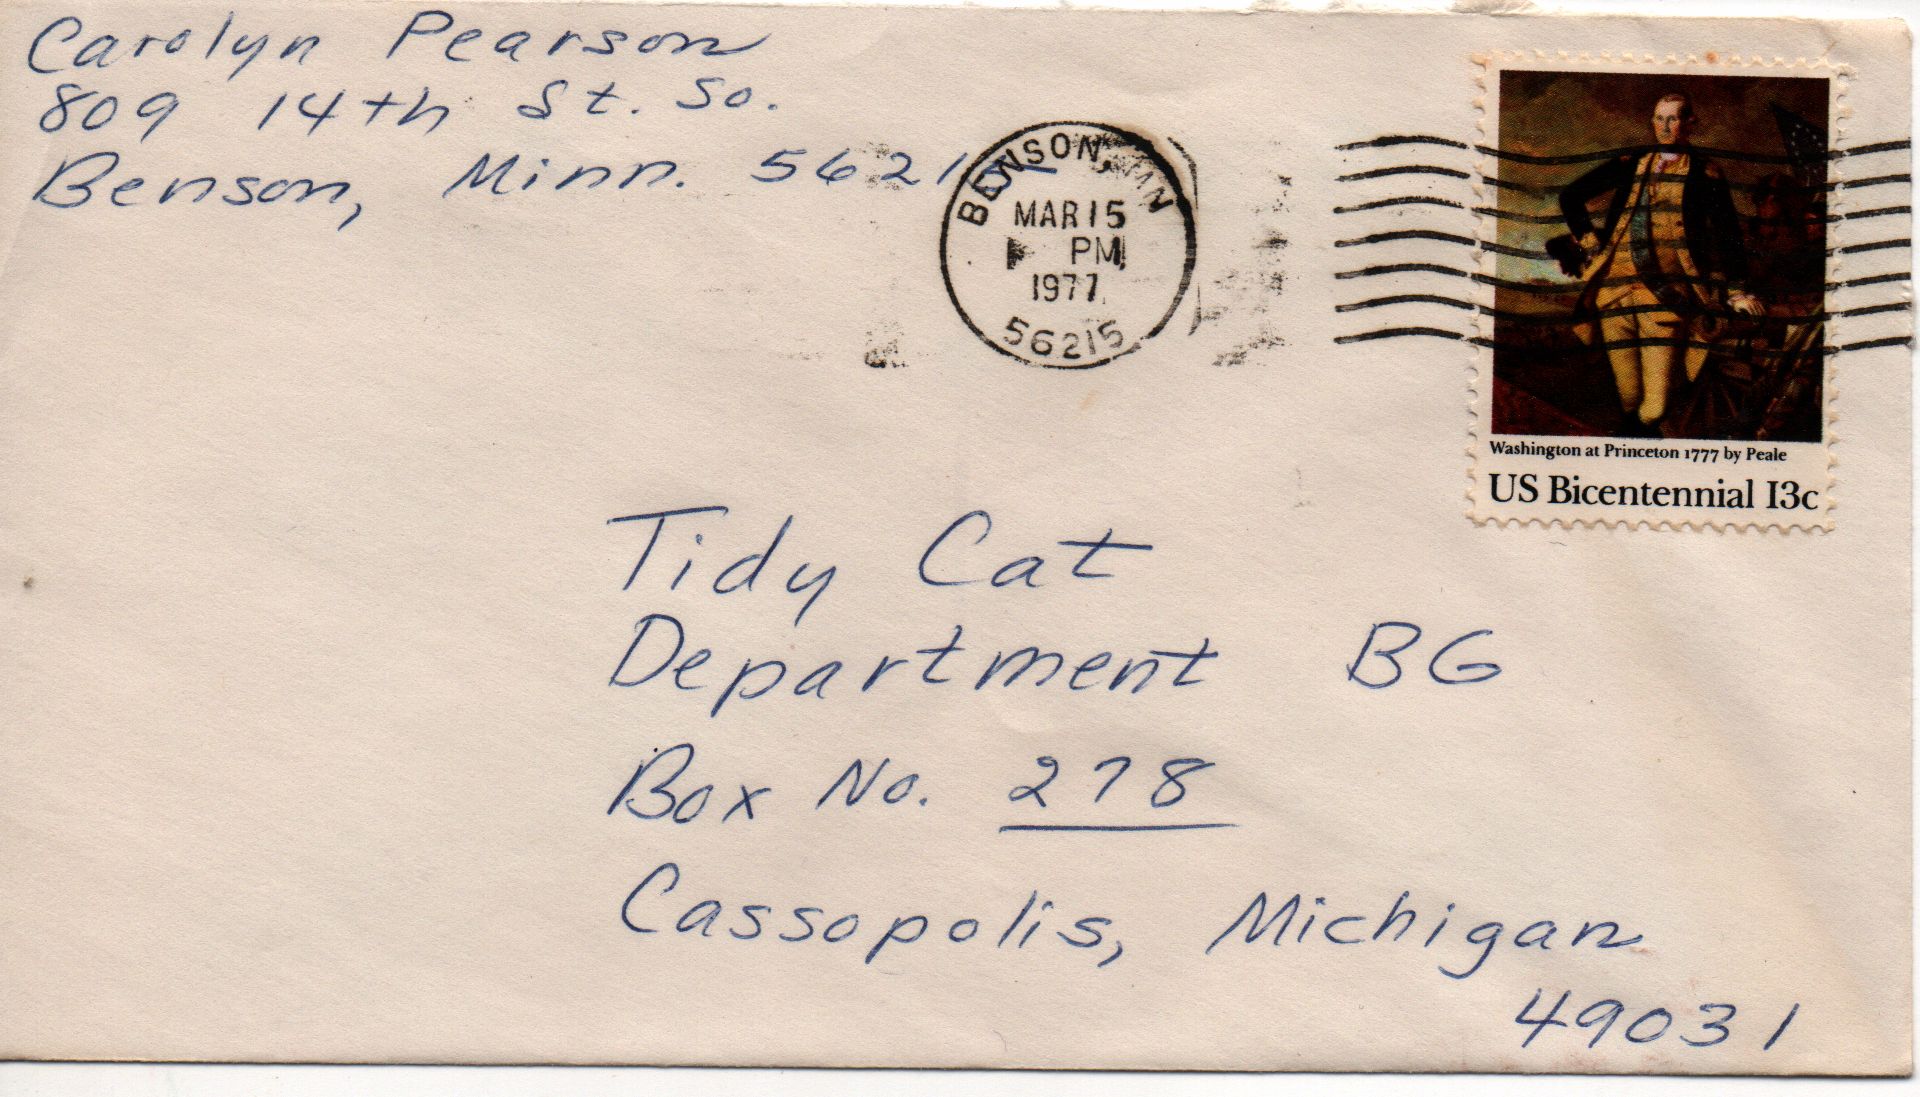 Carolyn Pearson
809 14th St. So.
Benson, Minn. 5621
BENSON, MN
MAR 15
PM
1977
56215
Washington at Princeton 1777 by Peale
US Bicentennial 13c
Tidy Cat
Department BG
Box No. 278
Cassopolis, Michigan
49031